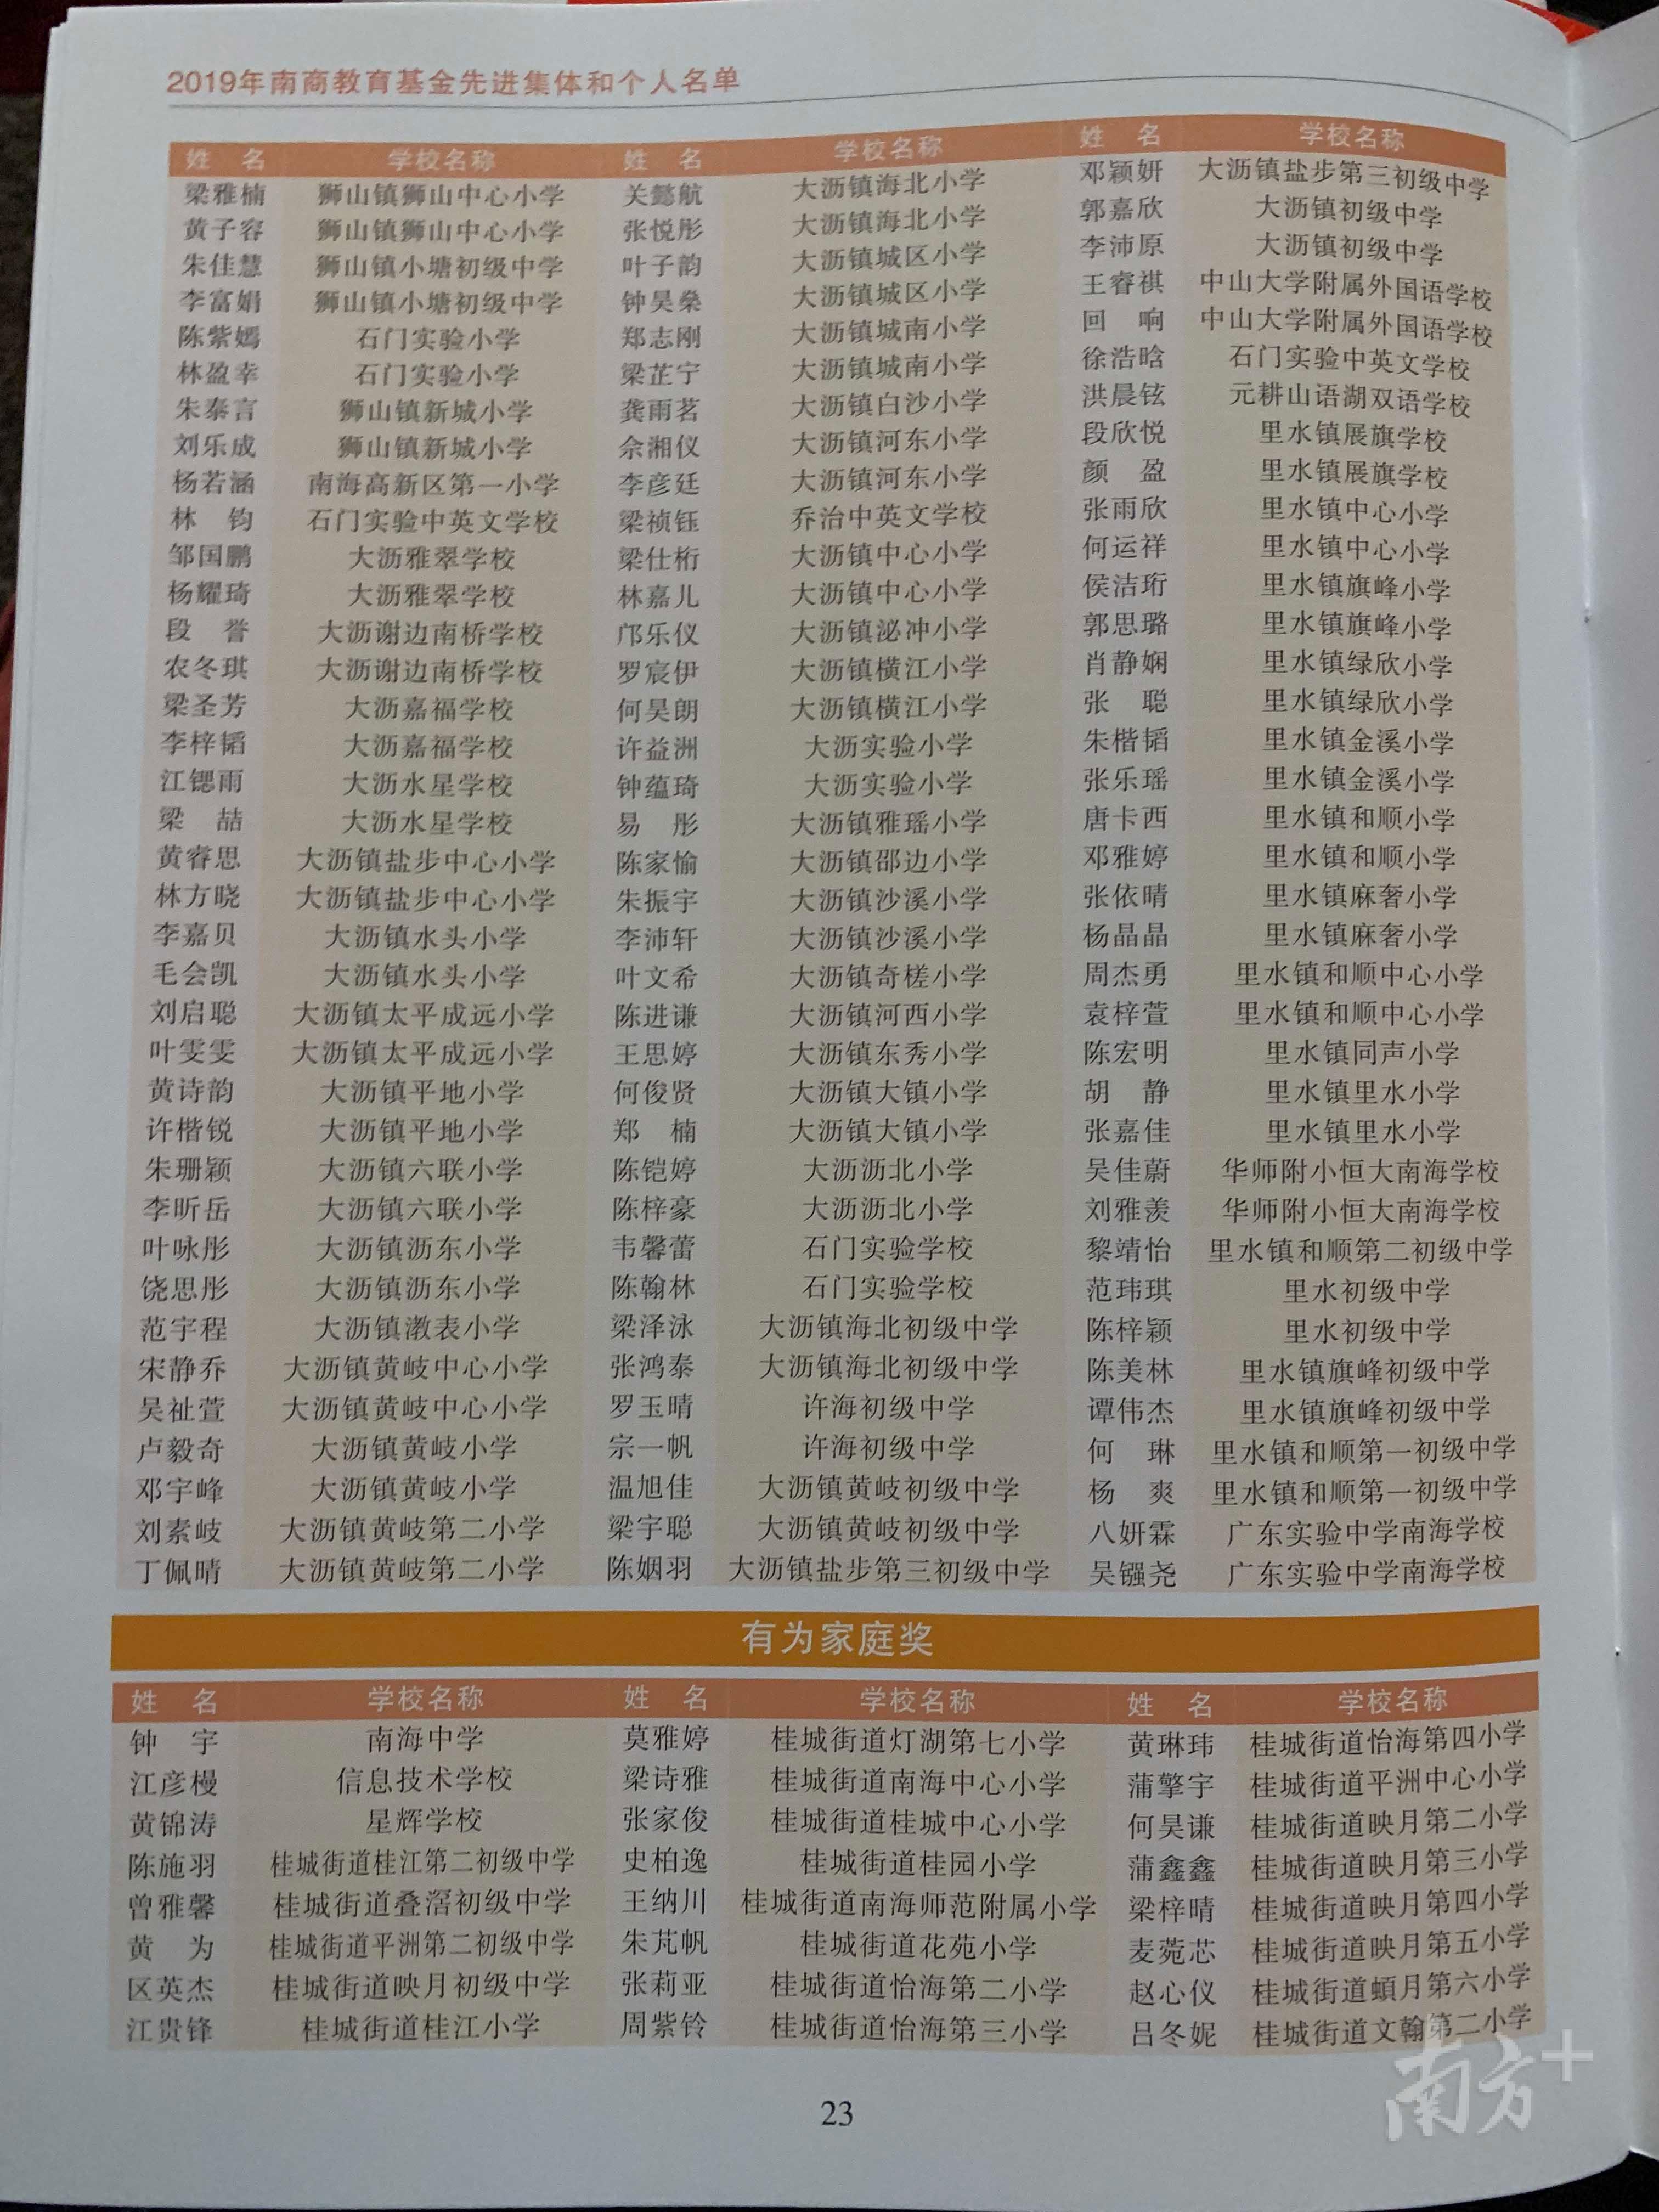 2019年南商教育基金先进集体和个人名单
姓 名 学校名称 姓 名 学校名称 姓 名 学校名称
梁雅楠 狮山镇狮山中心小学 关懿航 大沥镇海北小学 邓颖妍 大沥镇盐步第三初级中学
黄子容 狮山镇狮山中心小学 张悦彤 大沥镇海北小学 郭嘉欣 大沥镇初级中学
朱佳慧 狮山镇小塘初级中学 叶子韵 大沥镇城区小学 李沛原 大沥镇初级中学
李富娟 狮山镇小塘初级中学 钟昊燊 大沥镇城区小学 王睿祺 中山大学附属外国语学校
陈紫嫣 石门实验小学 郑志刚 大沥镇城南小学 回 响 中山大学附属外国语学校
林盈幸 石门实验小学 梁芷宁 大沥镇城南小学 徐浩晗 石门实验中英文学校
朱泰言 狮山镇新城小学 龚雨茗 大沥镇白沙小学 洪晨铉 元耕山语湖双语学校
刘乐成 狮山镇新城小学 佘湘仪 大沥镇河东小学 段欣悦 里水镇展旗学校
杨若涵 南海高新区第一小学 李彦廷 大沥镇河东小学 颜 盈 里水镇展旗学校
林 钧 石门实验中英文学校 梁祯钰 乔治中英文学校 张雨欣 里水镇中心小学
邹国鹏 大沥雅翠学校 梁仕桁 大沥镇中心小学 何运祥 里水镇中心小学
杨耀琦 大沥雅翠学校 林嘉儿 大沥镇中心小学 侯洁珩 里水镇旗峰小学
段 誉 大沥谢边南桥学校 邝乐仪 大沥镇泌冲小学 郭思璐 里水镇旗峰小学
农冬琪 大沥谢边南桥学校 罗宸伊 大沥镇横江小学 肖静娴 里水镇绿欣小学
梁圣芳 大沥嘉福学校 何昊朗 大沥镇横江小学 张 聪 里水镇绿欣小学
李梓韬 大沥嘉福学校 许益洲 大沥实验小学 朱楷韬 里水镇金溪小学
江锶雨 大沥水星学校 钟蕴琦 大沥实验小学 张乐瑶 里水镇金溪小学
梁 喆 大沥水星学校 易 彤 大沥镇雅瑶小学 唐卡西 里水镇和顺小学
黄睿思 大沥镇盐步中心小学 陈家愉 大沥镇邵边小学 邓雅婷 里水镇和顺小学
林方晓 大沥镇盐步中心小学 朱振宇 大沥镇沙溪小学 张依晴 里水镇麻奢小学
李嘉贝 大沥镇水头小学 李沛轩 大沥镇沙溪小学 杨晶晶 里水镇麻奢小学
毛会凯 大沥镇水头小学 叶文希 大沥镇奇槎小学 周杰勇 里水镇和顺中心小学
刘启聪 大沥镇太平成远小学 陈进谦 大沥镇河西小学 袁梓萱 里水镇和顺中心小学
叶雯雯 大沥镇太平成远小学 王思婷 大沥镇东秀小学 陈宏明 里水镇同声小学
黄诗韵 大沥镇平地小学 何俊贤 大沥镇大镇小学 胡 静 里水镇里水小学
许楷锐 大沥镇平地小学 郑 楠 大沥镇大镇小学 张嘉佳 里水镇里水小学
朱珊颖 大沥镇六联小学 陈铠婷 大沥沥北小学 吴佳蔚 华师附小恒大南海学校
李昕岳 大沥镇六联小学 陈梓豪 大沥沥北小学 刘雅羡 华师附小恒大南海学校
叶咏彤 大沥镇沥东小学 韦馨蕾 石门实验学校 黎靖怡 里水镇和顺第二初级中学
饶思彤 大沥镇沥东小学 陈翰林 石门实验学校 范玮琪 里水初级中学
范宇程 大沥镇漖表小学 梁泽泳 大沥镇海北初级中学 陈梓颖 里水初级中学
宋静乔 大沥镇黄岐中心小学 张鸿泰 大沥镇海北初级中学 陈美林 里水镇旗峰初级中学
吴祉萱 大沥镇黄岐中心小学 罗玉晴 许海初级中学 谭伟杰 里水镇旗峰初级中学
卢毅奇 大沥镇黄岐小学 宗一帆 许海初级中学 何 琳 里水镇和顺第一初级中学
邓宇峰 大沥镇黄岐小学 温旭佳 大沥镇黄岐初级中学 杨 爽 里水镇和顺第一初级中学
刘素岐 大沥镇黄岐第二小学 梁宇聪 大沥镇黄岐初级中学 八妍霖 广东实验中学南海学校
丁佩晴 大沥镇黄岐第二小学 陈姻羽 大沥镇盐步第三初级中学 吴镪尧 广东实验中学南海学校
有为家庭奖
姓 名 学校名称 姓 名 学校名称 姓 名 学校名称
钟 宇 南海中学 莫雅婷 桂城街道灯湖第七小学 黄琳玮 桂城街道怡海第四小学
江彦槾 信息技术学校 梁诗雅 桂城街道南海中心小学 蒲擎宇 桂城街道平洲中心小学
黄锦涛 星辉学校 张家俊 桂城街道桂城中心小学 何昊谦 桂城街道映月第二小学
陈施羽 桂城街道桂江第二初级中学 史柏逸 桂城街道桂园小学 蒲鑫鑫 桂城街道映月第三小学
曾雅馨 桂城街道叠滘初级中学 王纳川 桂城街道南海师范附属小学 梁梓晴 桂城街道映月第四小学
黄 为 桂城街道平洲第二初级中学 朱芃帆 桂城街道花苑小学 麦菀芯 桂城街道映月第五小学
区英杰 桂城街道映月初级中学 张莉亚 桂城街道怡海第二小学 赵心仪 桂城街道蠙月第六小学
江贵锋 桂城街道桂江小学 周紫铃 桂城街道怡海第三小学 吕冬妮 桂城街道文翰第二小学
23
南方+